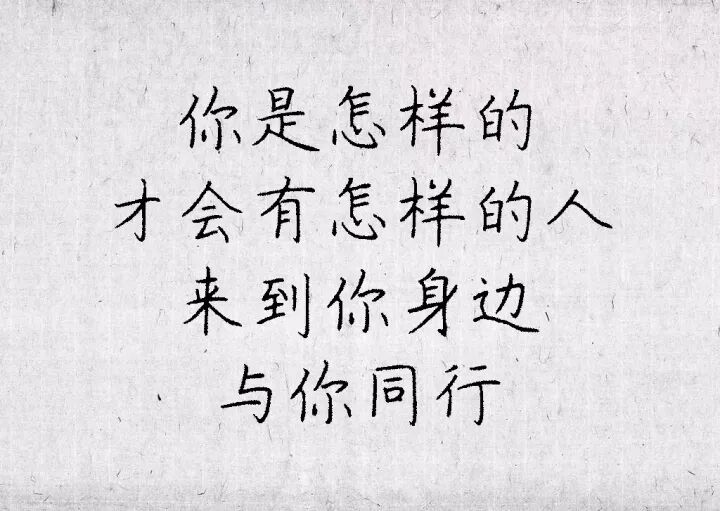 你是怎样的
才会有怎样的人
来到你身边
与你同行